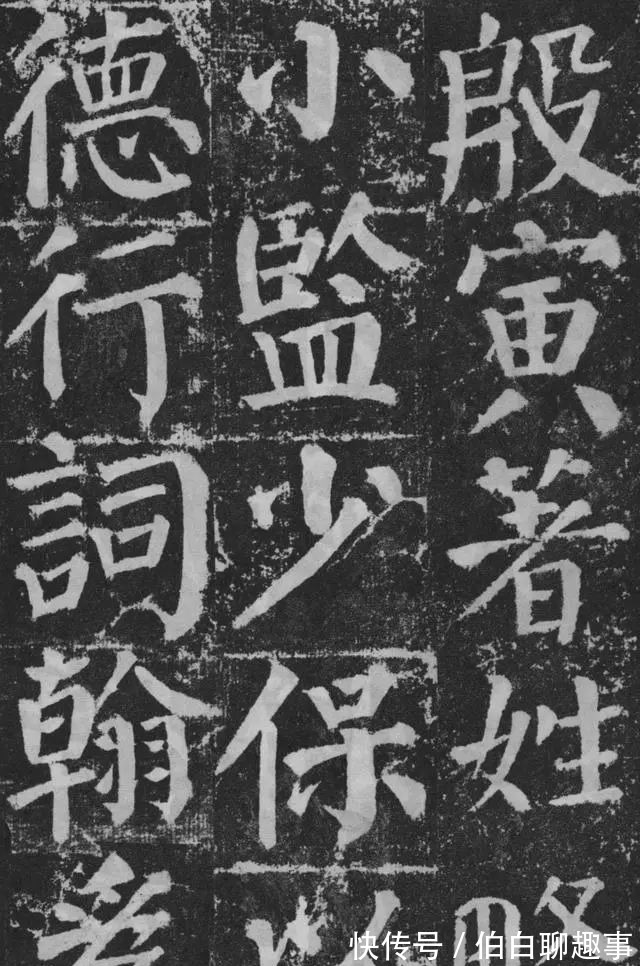 殷寅著姓略
小監少保以
德行詞翰爲
快传号/伯白聊趣事